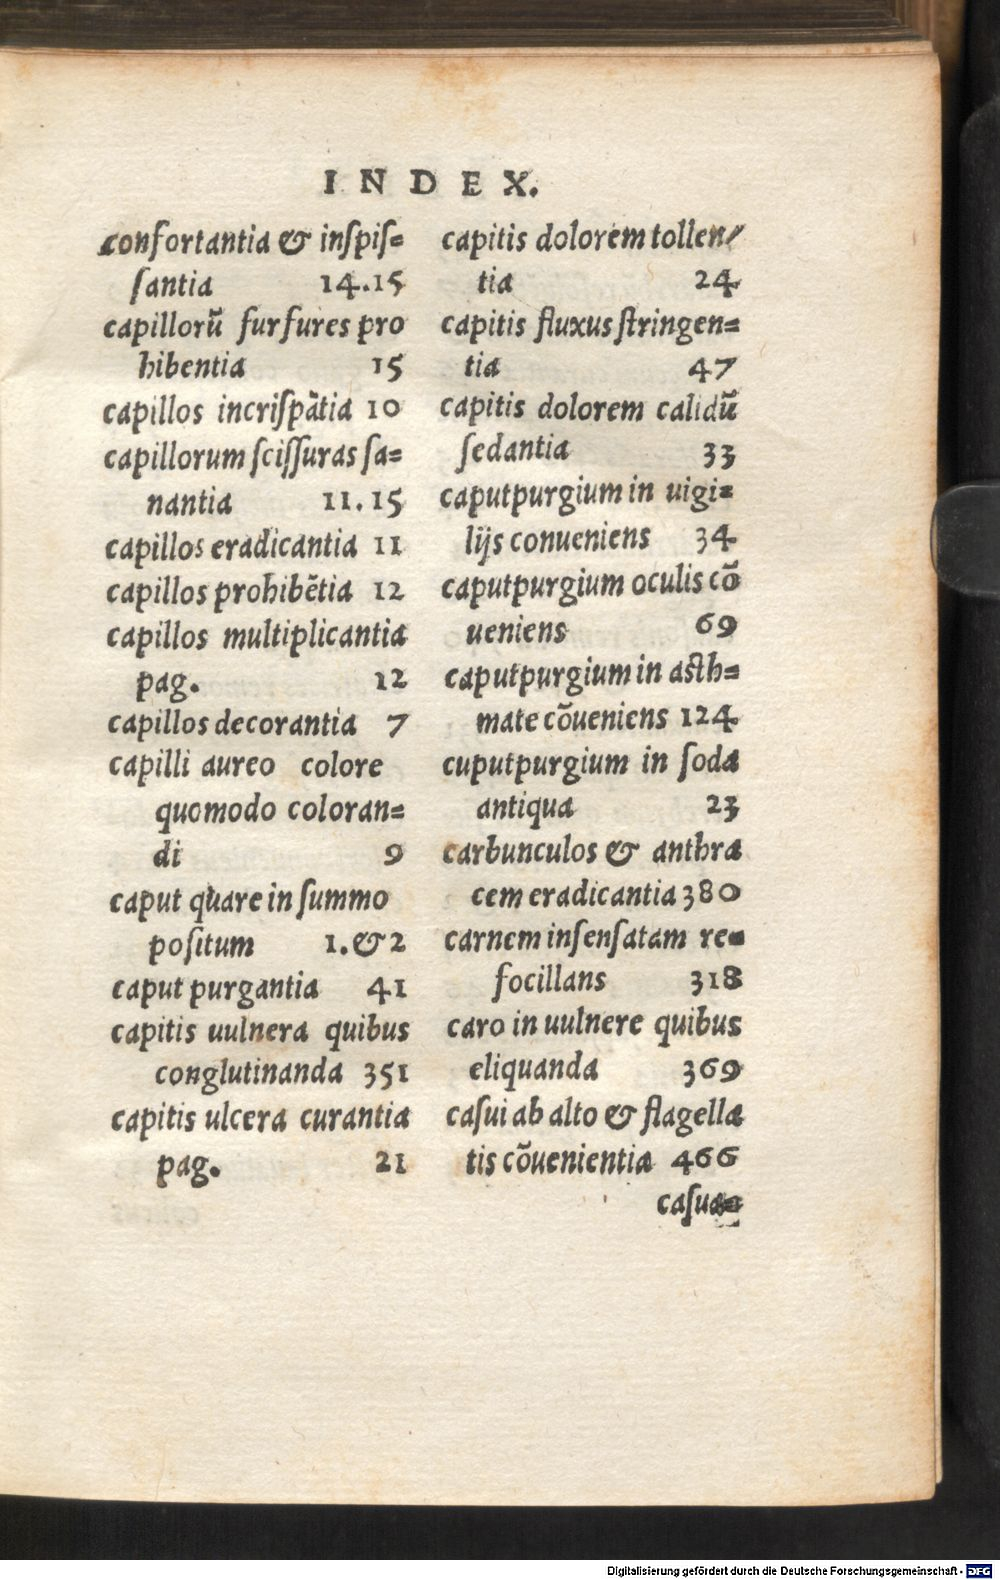 INDEX.
confortantia & inſpiſ=
ſantia 14.15
capillorũ furfures pro
hibentia 15
capillos incriſpãtia 10
capillorum ſciſſuras ſa=
nantia 11.15
capillos eradicantia 11
capillos prohibẽtia 12
capillos multiplicantia
pag. 12
capillos decorantia 7
capilli aureo colore
quomodo coloran=
di 9
caput quare in ſummo
poſitum 1.&2
caput purgantia 41
capitis uulnera quibus
conglutinanda 351
capitis ulcera curantia
pag. 21
capitis dolorem tollen/
tia 24
capitis fluxus ſtringen=
tia 47
capitis dolorem calidũ
ſedantia 33
caputpurgium in uigi=
lijs conueniens 34
caputpurgium oculis cõ
ueniens 69
caputpurgium in aſth=
mate cõueniens 124
cuputpurgium in ſoda
antiqua 23
carbunculos & anthra
cem eradicantia 380
carnem inſenſatam re=
focillans 318
caro in uulnere quibus
eliquanda 369
caſui ab alto & flagella
tis cõuenientia 466
caſua=
Digitalisierung gefördert durch die Deutsche Forschungsgemeinschaft - DFG